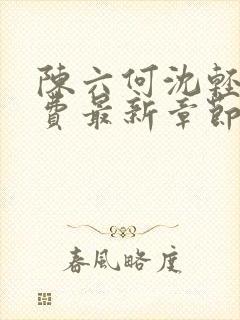 陳六何沈輕
費最新章節
春風略度